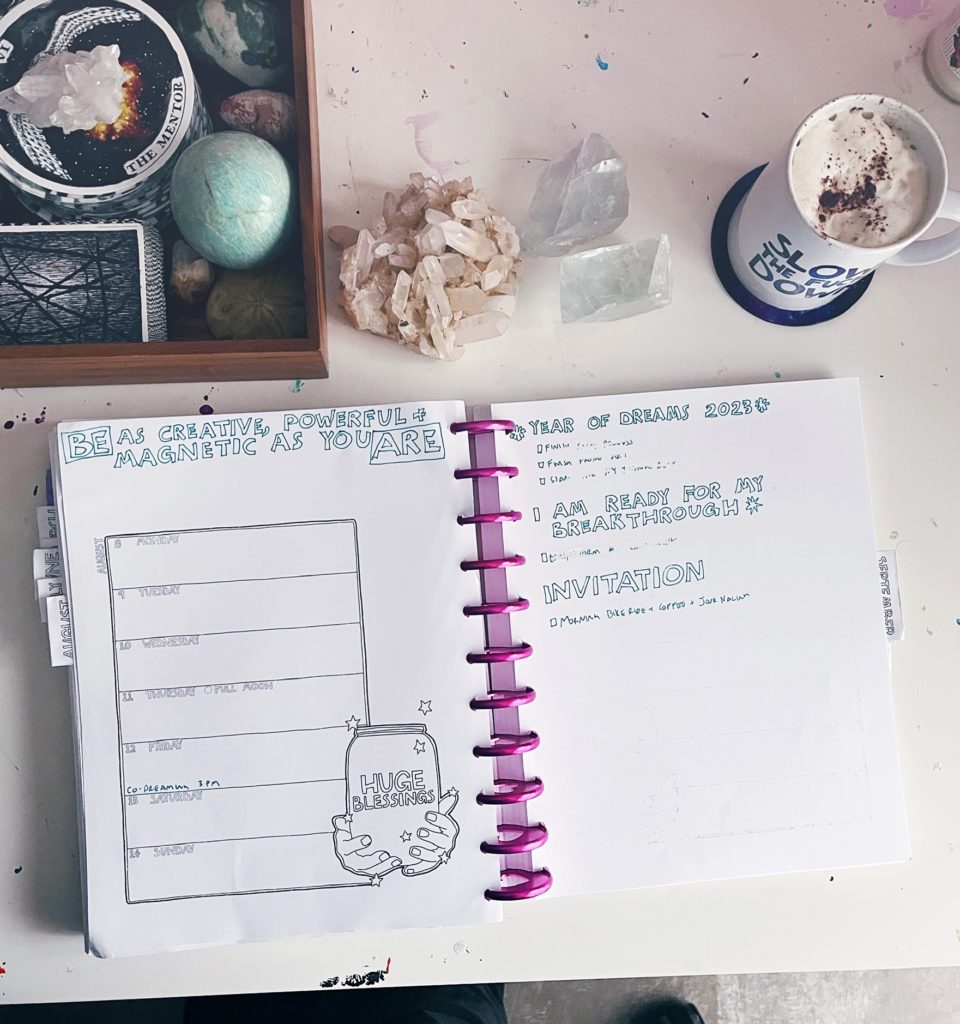 VI
THE MENTOR
SLOW
THE FUCK
DOWN
BE AS CREATIVE, POWERFUL +
MAGNETIC AS YOU ARE
AUGUST
8 MONDAY
9 TUESDAY
10 WEDNESDAY
11 THURSDAY FULL MOON
12 FRIDAY
CO-DREAMING 3PM
13 SATURDAY
14 SUNDAY
HUGE
BLESSINGS
AUGUST
YEAR OF DREAMS 2023
FINISH
FINISH
I AM READY FOR MY
BREAKTHROUGH
INVITATION
BIKE RIDE + COFFEE +
SEPTEMBER